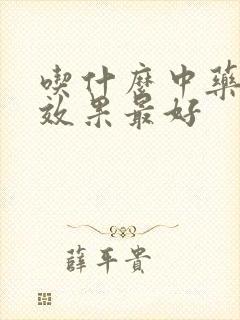 喫什麼中藥
效果最好
薛平貴